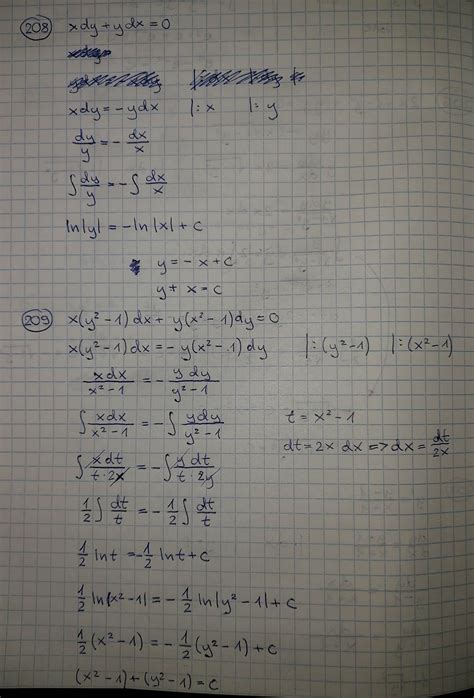 208 xdy + ydx = 0
xdy = -ydx |: x |: y
dy/y = - dx/x
∫ dy/y = -∫ dx/x
ln|y| = -ln|x| + c
y = -x + c
y + x = c
209 x(y²-1)dx + y(x²-1)dy = 0
x(y²-1)dx = -y(x²-1)dy |: (y²-1) |: (x²-1)
xdx/x²-1 = - ydy/y²-1
∫ xdx/x²-1 = -∫ ydy/y²-1 t = x²-1
dt = 2x dx => dx = dt/2x
∫ xdt/t·2x = -∫ ydt/t·2y
1/2 ∫ dt/t = -1/2 ∫ dt/t
1/2 lnt = -1/2 lnt + c
1/2 ln|x²-1| = -1/2 ln|y²-1| + c
1/2 (x²-1) = -1/2 (y²-1) + c
(x²-1) + (y²-1) = c